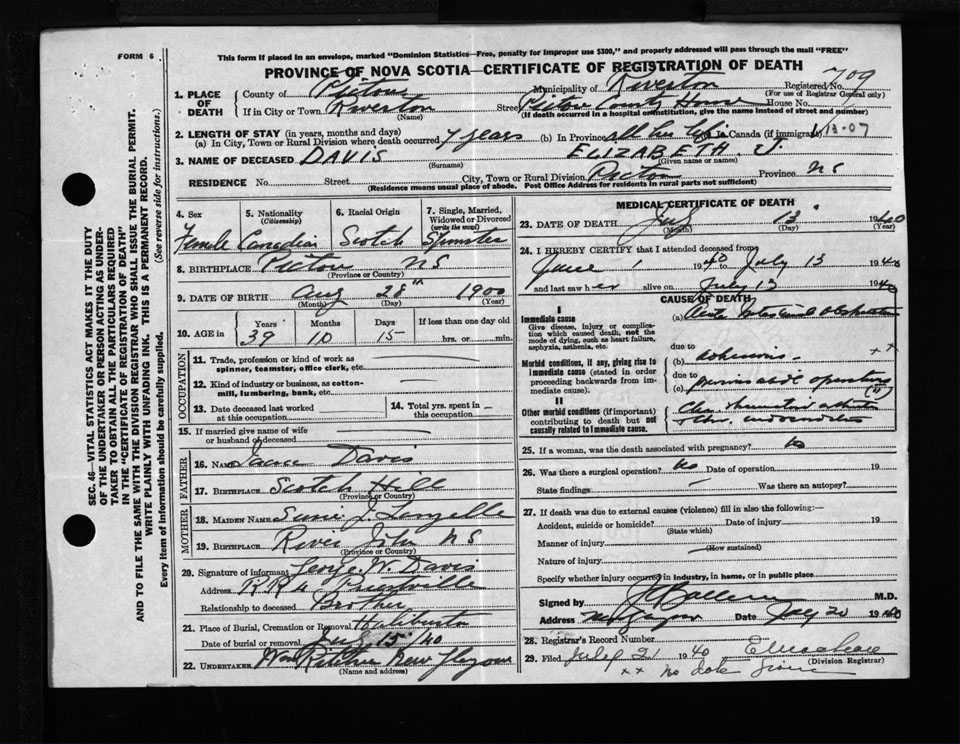 FORM 6
This form if placed in an envelope, marked "Dominion Statistics—Free, penalty for improper use $300," and properly addressed will pass through the mail "FREE"
PROVINCE OF NOVA SCOTIA—CERTIFICATE OF REGISTRATION OF DEATH
1. PLACE OF DEATH
County of Pictou Municipality of Riverton Registered No. 709
(For use of Registrar General only)
If in City or Town Riverton Street Pictou County Home House No.
(Name) (If death occurred in a hospital or institution, give the name instead of street and number)
2. LENGTH OF STAY (in years, months and days)
(a) In City, Town or Rural Division where death occurred 7 years (b) In Province all her life In Canada (if immigrant)
13-07
3. NAME OF DECEASED DAVIS ELIZABETH J.
(Surname) (Given name or names)
RESIDENCE No. Street City, Town or Rural Division Pictou Province NS
(Residence means usual place of abode. Post Office Address for residents in rural parts not sufficient)
4. Sex
Female
5. Nationality
(Citizenship)
Canadian
6. Racial Origin
Scotch
7. Single, Married, Widowed or Divorced
(write the word)
Spinster
8. BIRTHPLACE Pictou NS
(Province or Country)
9. DATE OF BIRTH Aug 28th 1900
(Month) (Day) (Year)
10. AGE in
Years Months Days If less than one day old
39 10 15 hrs. or min.
OCCUPATION
11. Trade, profession or kind of work as spinner, teamster, office clerk, etc. —
12. Kind of industry or business, as cotton-mill, lumbering, bank, etc. —
13. Date deceased last worked at this occupation
14. Total yrs. spent in this occupation —
15. If married give name of wife or husband of deceased —
FATHER
16. NAME Davis
17. BIRTHPLACE Scotch Hill
(Province or Country)
MOTHER
18. MAIDEN NAME J. Langille
19. BIRTHPLACE River John NS
(Province or Country)
20. Signature of informant George W. Davis
Address R.R.
Relationship to deceased Brother
21. Place of Burial, Cremation or Removal Haliburton
Date of burial or removal July 15/40
22. UNDERTAKER New Glasgow
(Name and address)
MEDICAL CERTIFICATE OF DEATH
23. DATE OF DEATH July 13 1940
(Month) (Day) (Year)
24. I HEREBY CERTIFY that I attended deceased from
June 1 1940 to July 13 1940
and last saw her alive on July 13 1940
CAUSE OF DEATH
I
Immediate cause
Give disease, injury or complication which caused death, not the mode of dying, such as heart failure, asphyxia, asthenia, etc.
(a) Acute Intestinal Obstruction
due to
Morbid conditions, if any, giving rise to immediate cause (stated in order proceeding backwards from immediate cause).
(b) adhesions - xx
due to
(c) operation
II
Other morbid conditions (if important) contributing to death but not causally related to immediate cause.
25. If a woman, was the death associated with pregnancy? No
26. Was there a surgical operation? No Date of operation 19
State findings — Was there an autopsy?
27. If death was due to external causes (violence) fill in also the following:—
Accident, suicide or homicide? Date of injury 19
(State which)
Manner of injury
(How sustained)
Nature of injury
Specify whether injury occurred in industry, in home, or in public place
Signed by M.D.
Address Date July 20 1940
28. Registrar's Record Number
29. Filed July 21 1940
(Division Registrar)
xx no date given
SEC. 46—VITAL STATISTICS ACT MAKES IT THE DUTY
OF THE UNDERTAKER OR PERSON ACTING AS UNDER-
TAKER TO OBTAIN ALL THE PARTICULARS REQUIRED
IN THE "CERTIFICATE OF REGISTRATION OF DEATH"
AND TO FILE THE SAME WITH THE DIVISION REGISTRAR WHO SHALL ISSUE THE BURIAL PERMIT.
WRITE PLAINLY WITH UNFADING INK. THIS IS A PERMANENT RECORD.
Every item of information should be carefully supplied. (See reverse side for instructions.)